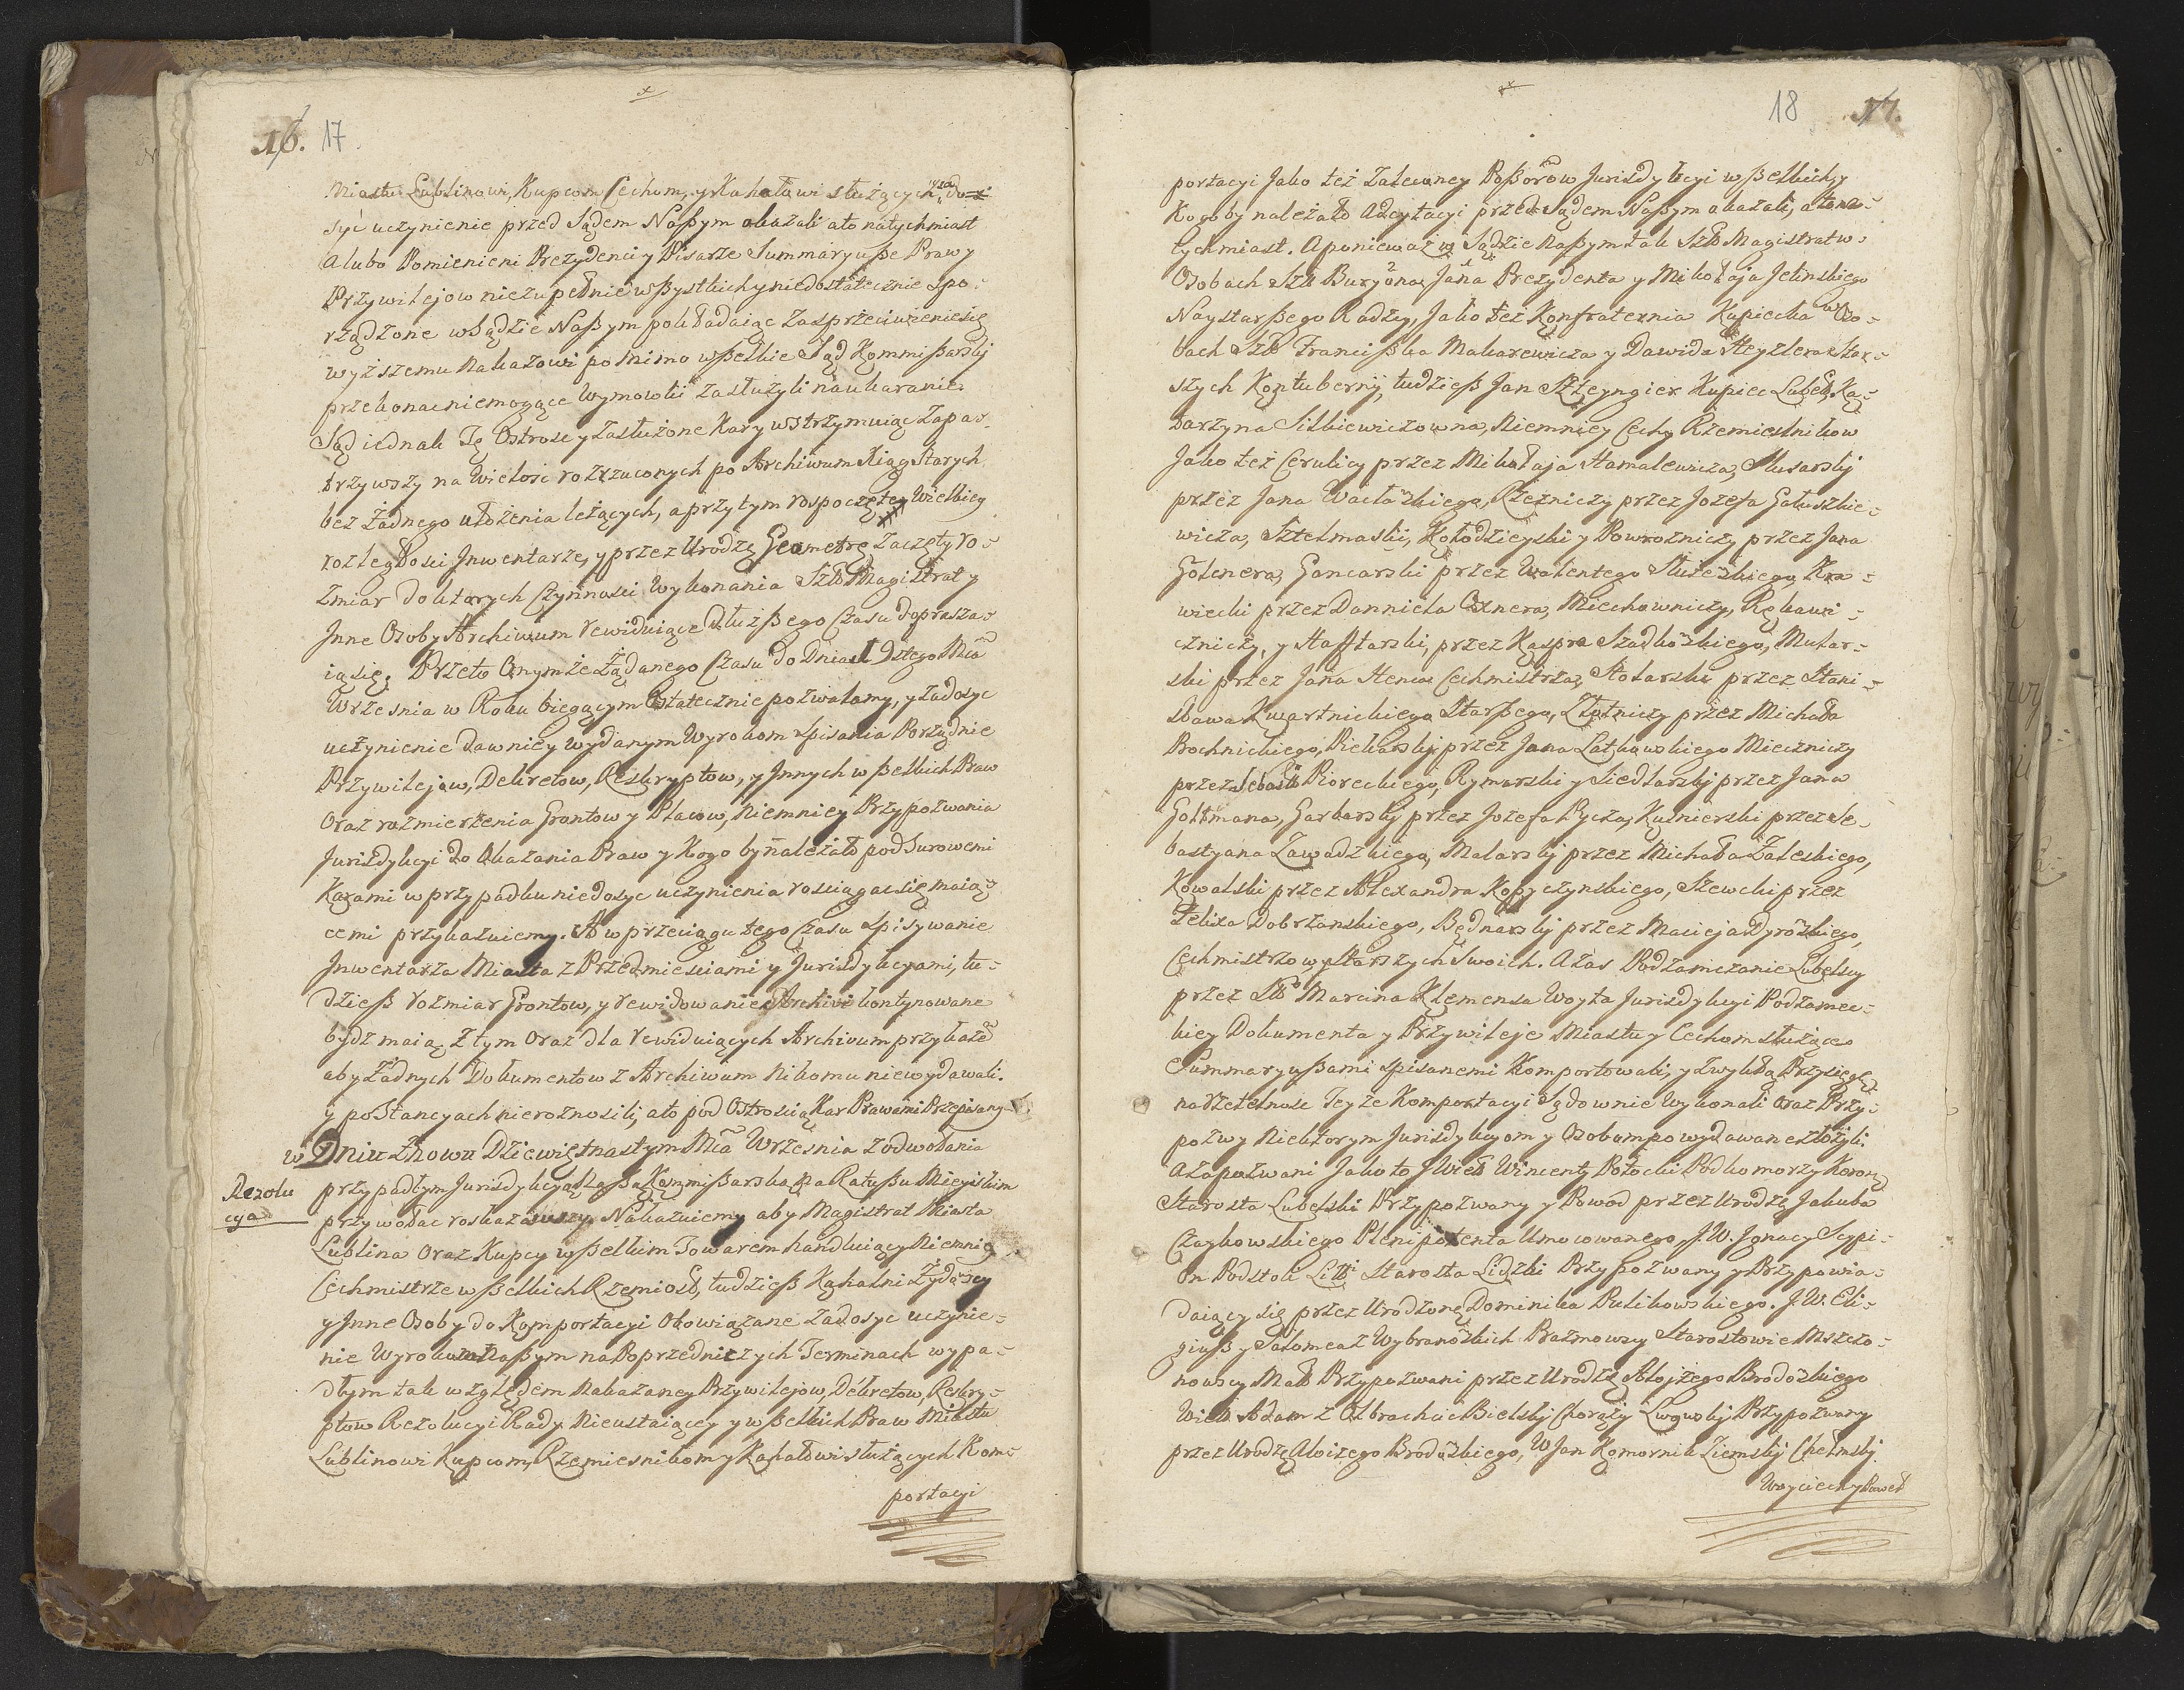 16. 17
Miastu Lublinowi, Kupcom Cechom, y Kahałowi służących, do
syć uczynienie przed Sądem Naßym okazali ato natychmiast
Alubo Pomienieni Prezydenci y Pisarze Summaryuße Praw y
Przywilejow niezupełnie wßystkich y niedostatecznie spo-
rządzone w Sądzie Naßym pokładaiąc zasprzeciwienie się
wyższemu nakazowi pomimo wßelkie Sąd Kommißarski
przekonac niemogące Wymowki zasłużyli na ukaranie
Sąd iednak Tę Ostrość y zasłużone Kary wstrzymuiąc zapa-
trzywszy na Wielość rozrzuconych po Archiwum Xiąg Starych
bez żadnego ułożenia leżących, a przytym rospoczętey Wielkiey
rozległości Inwentarze, y przez Urodzę Geometrę Zaczęty ro-
zmiar do ktorych Czynnosci Wykonania Szl: Magistrat y
Inne Osoby Archiwum rewiduiące dłużßego Czasu doprasza-
ią się. Przeto Onymże Żądanego Czasu do Dnia 19stego Mca
Wrzesnia w Roku bieżącym Ostatecznie pozwalamy, y zadosyc
uczynienie dawniey wydanym Wyrokom spisania Porządnie
Przywilejow, Dekretow, Reskryptow, y Innych wßelkich Praw
Oraz rozmierzenia Grontow y Placow, niemniey Przypozwania
Jurisdykcyi do Okazania Praw y Kogo by należało pod Surowemi
Karami w przypadku niedosyc uczynienia rosciągac się maią-
cemi przykazuiemy. A w przeciągu tego Czasu Spisywanie
Inwentarza Miasta z Przedmiesciami y Jurisdykcyami, tu-
dzieß rozmiar Grontow, y rewidowanie Archivi kontynowane
bydz maią z tym Oraz dla rewiduiących Archivum przykaze
aby Żadnych Dokumentow z Archiwum Nikomu nie wydawali.
y po Stancyach nieroznosili, ato pod Ostroscią Kar Prawami Przepisany
w Dniu Znowu Dziewiętnastym Mca Wrzesnia z odwołania
Rezolu
cya
przypadłym Jurisdykcyą Naßą Kommißarską na Ratußu Mieyskim
przywołac roskazawszy. Nakazuiemy aby Magistrat Miasta
Lublina Oraz Kupcy wßelkim Towarem handluiący Niemniey
Cechmistrze wßelkich Rzemiosł, tudzieß Kahalni Żydowscy
y Inne Osoby do Komportacyi Obowiązane Zadosyc uczynie-
nie Wyrokom Naßym na Poprzedniczych Terminach wypa-
dłym tak względem nakazaney Przywilejow, Dekretow, Reskry-
ptow Rezolucyi Rady Nieustaiącey y wßelkich Praw Miastu
Lublinowi Kupcom, Rzemiesnikom y Kahałowi służących Kom-
portacyi
18 17.
portacyi Jako też Zaleconey Poßorow Jurisdykcyi wßelkich, y
Kogo by należało Adcytacyi przed Sądem Naßym okazali, a to na-
tychmiast. Aponieważ w Sądzie Naßym tak Szl: Magistrat w
Osobach Szl: Jana Prezydenta y Mikołaja Jelinskiego
Naystarßego Radzcy, Jako też Konfraternia Kupiecka w Oso-
bach Szl: Francißka Makarewicza y Dawida Heyzlera Star-
szych Kontubernij, tudzieß Jan Sztęyngier Kupiec Lubel: Ka-
tarzyna Silkiewiczowna, Niemniey Cechy Rzemieslnikow
Jako też Cerulicy przez Mikołaja Hamalewicza, Slusarski
przez Jana Wacławskiego, Rzeźniczy przez Jozefa Gałuszkie-
wicza, Sztelmaski, Kołodzieyski y Powrozniczy przez Jana
Golenera, Garncarski przez Walentego Służewskiego, Kra-
wiecki przez Danniela Oxnera, Miechowniczy, Rękawi-
czniczy, y Haftarski, przez Kaspra Szadkowskiego, Mular-
ski przez Jana Henca Cechmistrza, Stolarski przez Stani-
sława Kwartnickiego Starßego, Złotniczy przez Michała
Prochnickiego, Piekarski przez Jana Latkowskiego Mieczniczy
przez Sebast: Pioreckiego, Rymarski y Siedlarski przez Jana
Goltmana, Garbarski przez Jozefa Pycza, Kuznierski przez Se-
bastyana Zawadzkiego, Malarski przez Michała Zaleskiego,
Kowalski przez Alexandra Kopyczynskiego, Szewcki przez
Felixa Dobrzanskiego, Bednarski przez Macieja Dyrowskiego,
Cechmistrzow, Starszych Swoich. A zas Podzamczanie Lubelscy
przez Marcina Klemensa Woyta Jurisdykcyi Podzamec-
kiey Dokumenta y Przywileje Miastu y Cechom służące
Summaryußami spisanemi Komportowali, y zwykłą Przysięgę
na rzetelnosc Teyże Komportacyi Sądownie Wykonali Oraz Przy-
pozwy Niektorym Jurisdykcyom y Osobom powydawane złożyli.
A zapozwani Jako to JWiel: Wincenty Potocki Podkomorzy Koron:
Starosta Lubelski Przypozwany y Powod przez Urodze Jakuba
Czaykowskiego Plenipotenta Umocowanego, J.W. Ignacy Scypi-
on Podstoli Litt: Starosta Lidzki Przypozwany y Przypowia-
daiący się przez Urodzonę Dominika Pulikowskiego. J.W. Eli-
giuß y Salomea z Wybranowskich Prażmowscy Starostowie Mszczo-
nowscy Mał: Przypozwani przez Urodzę Aloyzego Brodowskiego
Wiel: Adam z Olbrachcic Bielski Chorąży Lwowski Przypozwany
przez Urodzę Aloizego Brodowskiego, W Jan Komornik Ziemski Chełmski
Woyciech y Paweł